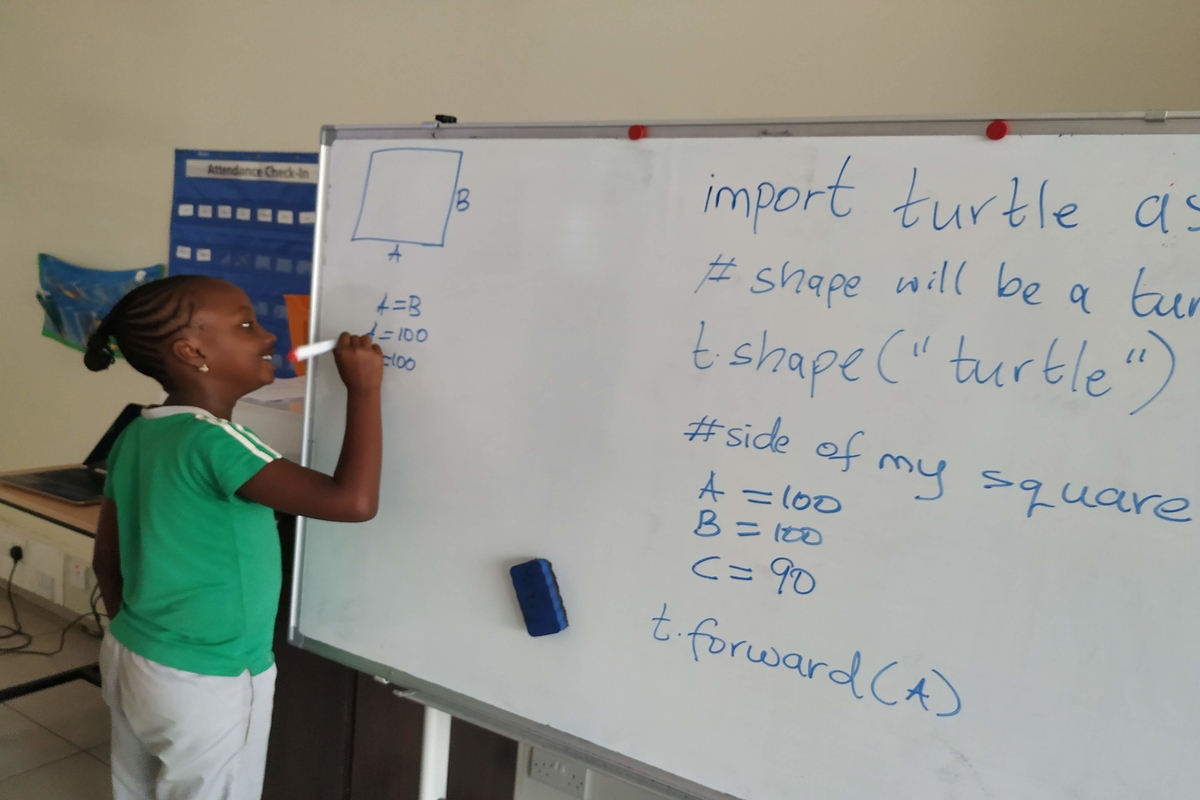 Attendance Check-In
B
A
A=B
A=100
=100
import turtle as
# shape will be a tur
t.shape("turtle")
#side of my square
A =100
B = 100
C = 90
t.forward(A)